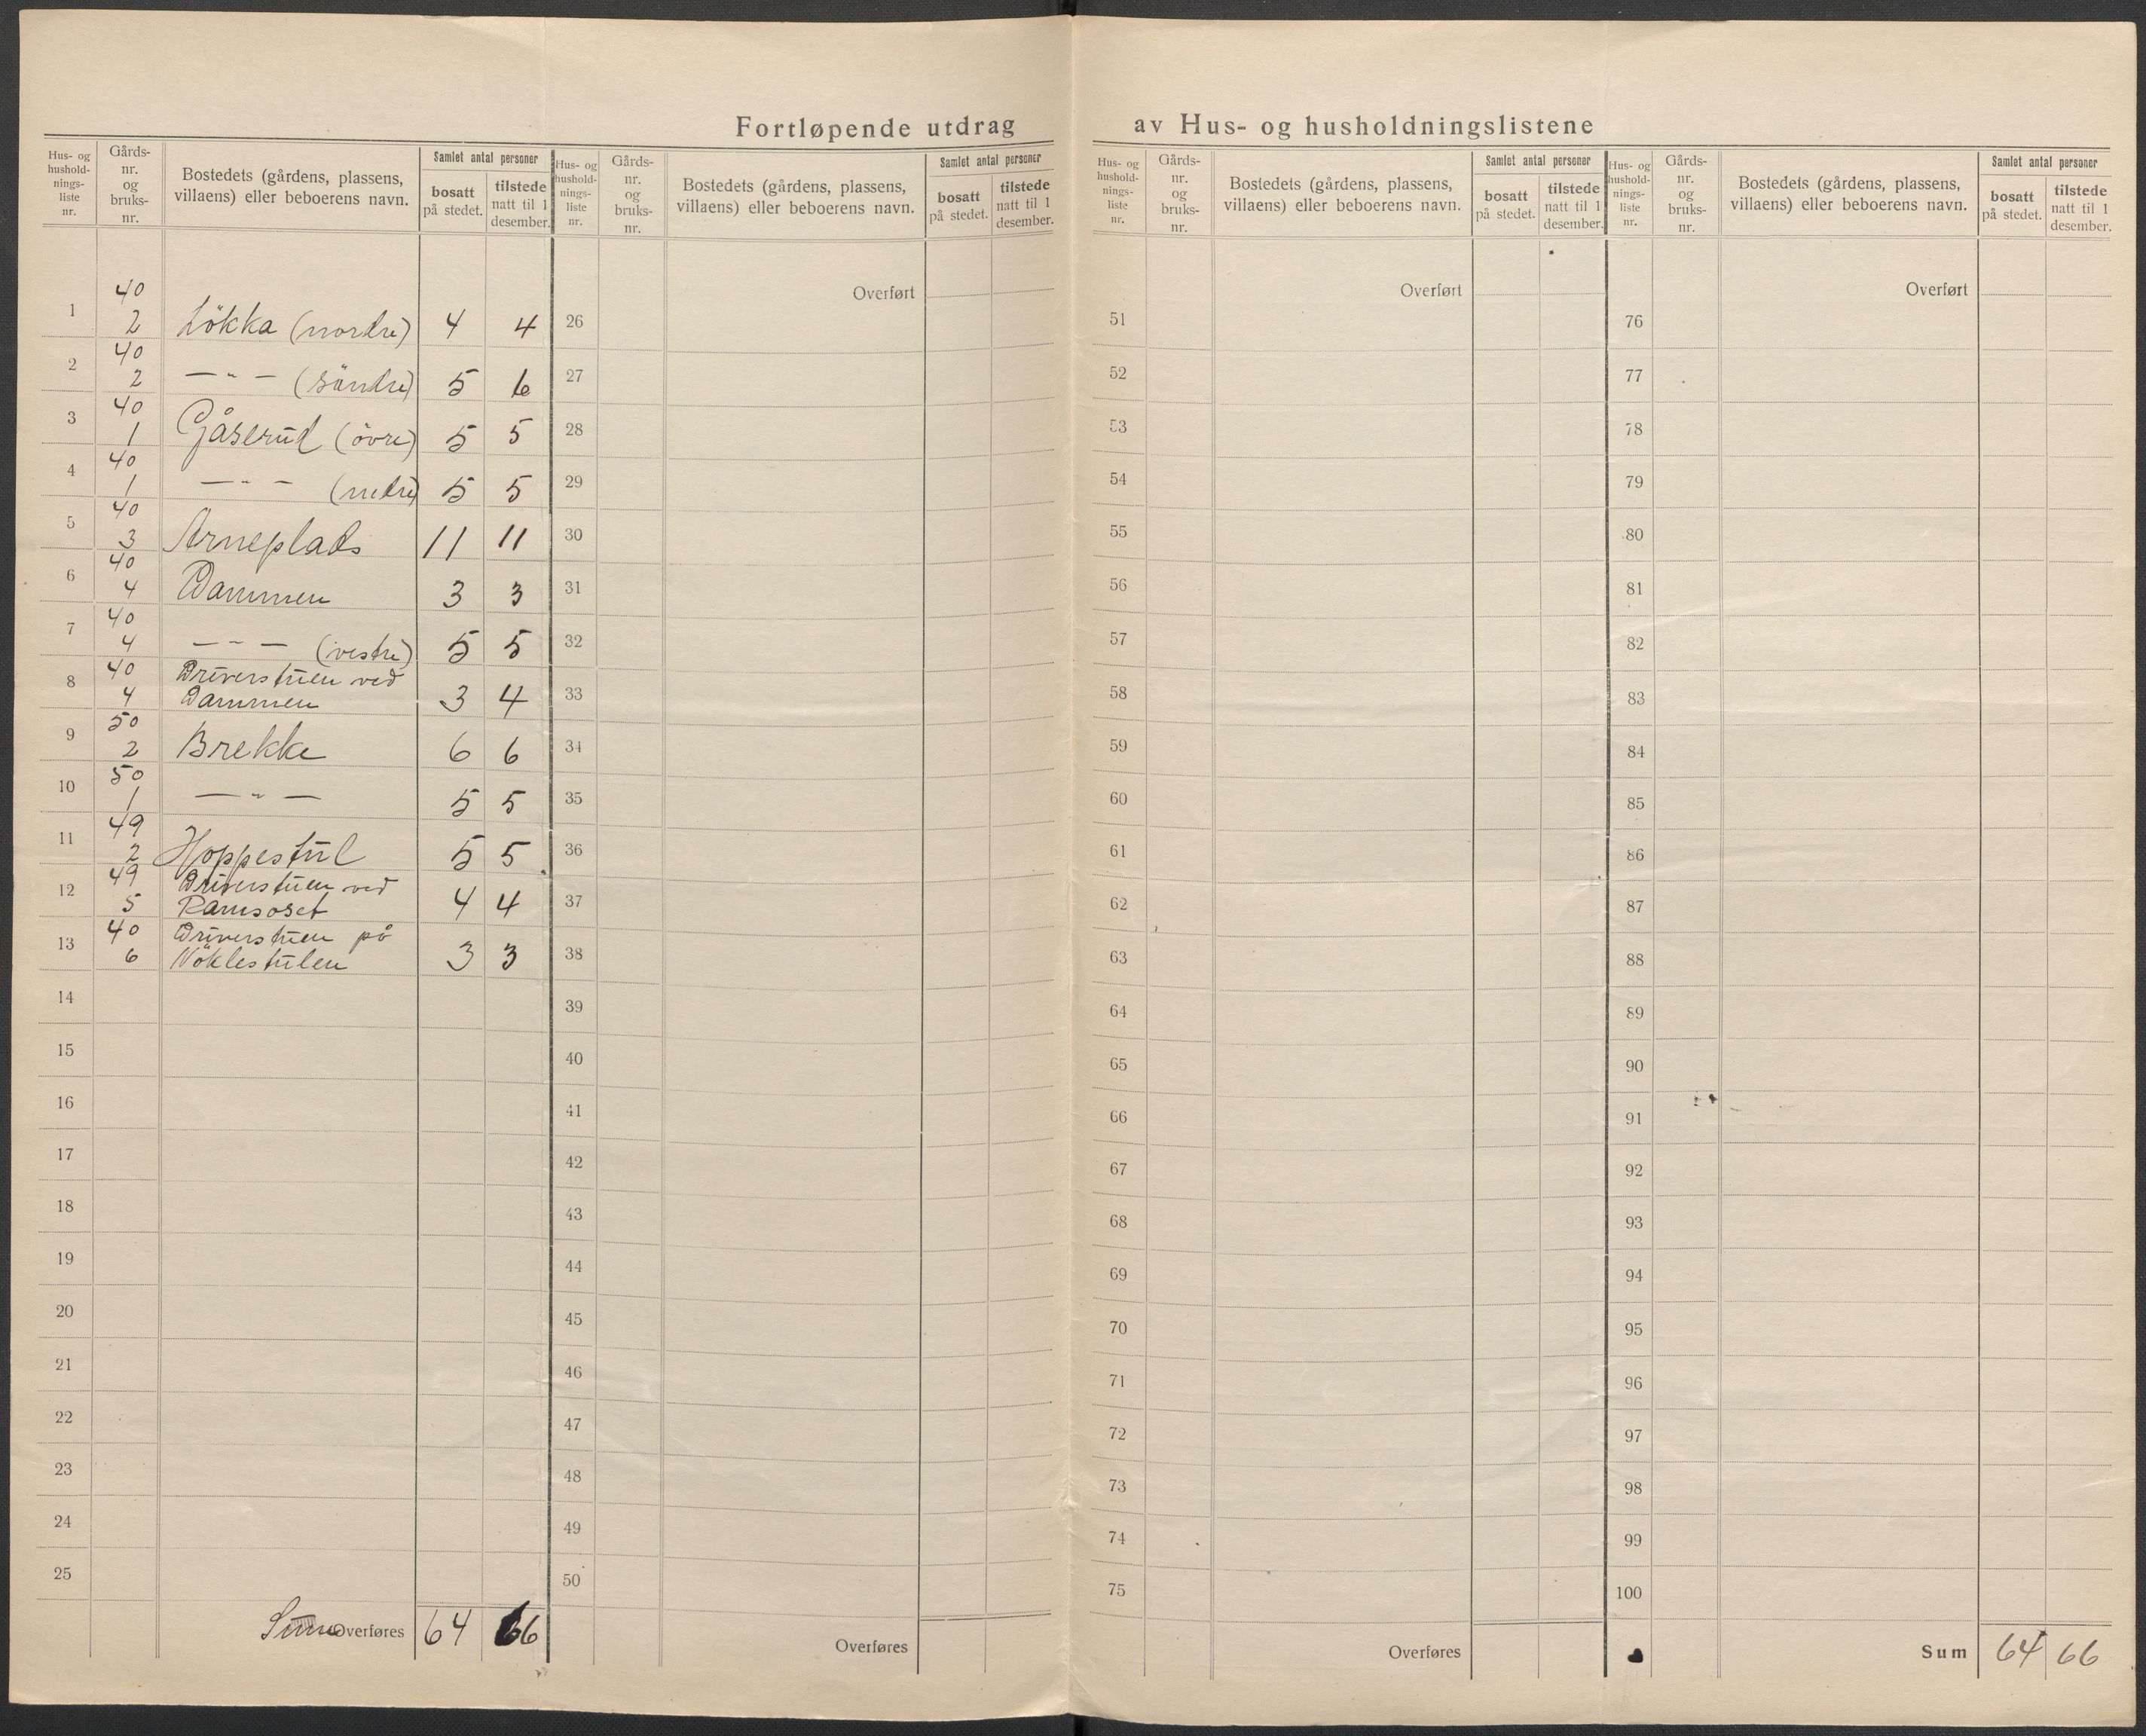 Fortløpende utdrag av Hus- og husholdningslistene
Hus- og hushold- nings- liste nr.
Gårds- nr. og bruks- nr.
Bostedets (gårdens, plassens, villaens) eller beboerens navn.
Samlet antal personer
bosatt på stedet.
tilstede natt til 1 desember.
1 40 2 Lökka (nordre) 4 4
2 40 2 — " — (söndre) 5 6
3 40 1 Gåserud (övre) 5 5
4 40 1 — " — (nedre) 5 5
5 40 3 Arneplads 11 11
6 40 4 Dammen 3 3
7 40 4 — " — (vestre) 5 5
8 40 4 Driverstuen ved
Dammen 3 4
9 50 2 Brekke 6 6
10 50 1 — " — 5 5
11 49 2 Hoppestul 5 5
12 49 5 Driverstuen ved
Ramsoset 4 4
13 40 6 Driverstuen på
Nöklestulen 3 3
14
15
16
17
18
19
20
21
22
23
24
25
Sum Overføres 64 66
Hus- og hushold- nings- liste nr.
Gårds- nr. og bruks- nr.
Bostedets (gårdens, plassens, villaens) eller beboerens navn.
Samlet antal personer
bosatt på stedet.
tilstede natt til 1 desember.
Overført
26
27
28
29
30
31
32
33
34
35
36
37
38
39
40
41
42
43
44
45
46
47
48
49
50
Overføres
Hus- og hushold- nings- liste nr.
Gårds- nr. og bruks- nr.
Bostedets (gårdens, plassens, villaens) eller beboerens navn.
Samlet antal personer
bosatt på stedet.
tilstede natt til 1 desember.
Overført
51
52
53
54
55
56
57
58
59
60
61
62
63
64
65
66
67
68
69
70
71
72
73
74
75
Overføres
Hus- og hushold- nings- liste nr.
Gårds- nr. og bruks- nr.
Bostedets (gårdens, plassens, villaens) eller beboerens navn.
Samlet antal personer
bosatt på stedet.
tilstede natt til 1 desember.
Overført
76
77
78
79
80
81
82
83
84
85
86
87
88
89
90
91
92
93
94
95
96
97
98
99
100
Sum 64 66